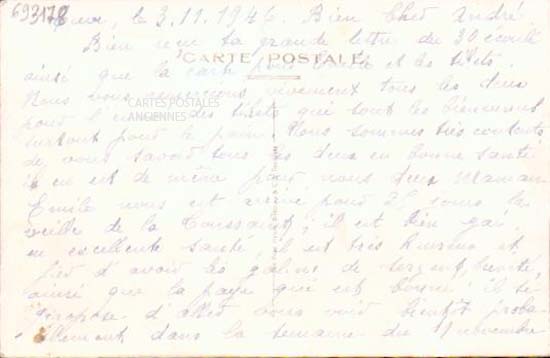 693178
le 3.11.1946. Bien Cher André
Bien reçu ta grande lettre du 30 écoulé
CARTE POSTALE
ainsi que la carte pour et les tikets.
Nous vous remercions vivement tous les deux
CARTES POSTALES
ANCIENNES
pour l'envoi des tikets qui sont les bienvenus
surtout pour le pain. Nous sommes très contents
de vous savoir tous les deux en bonne santé
il en est de même pour nous deux Maman
Emile nous est arrivé pour 21 jours la
veille de la Toussaint, il est bien gai
en excellente santé, il est très heureux et
d'avoir les galons de sergent
ainsi que la paye qui est bonne il se
propose d'aller vous voir bientôt proba-
blement dans la semaine du novembre